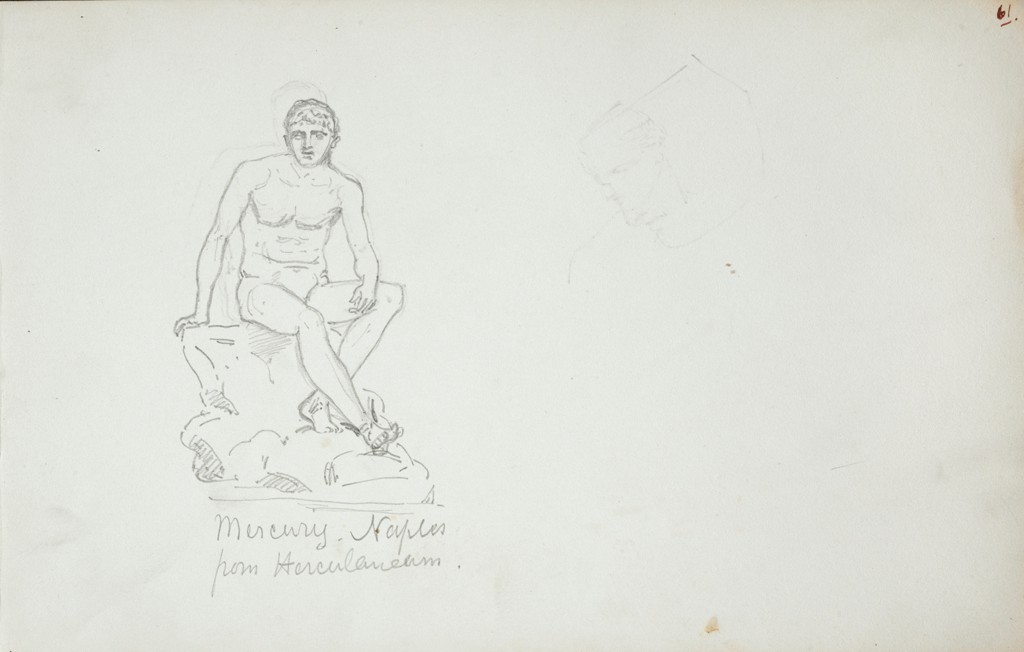 61.
Mercury. Naples
from Herculaneum.